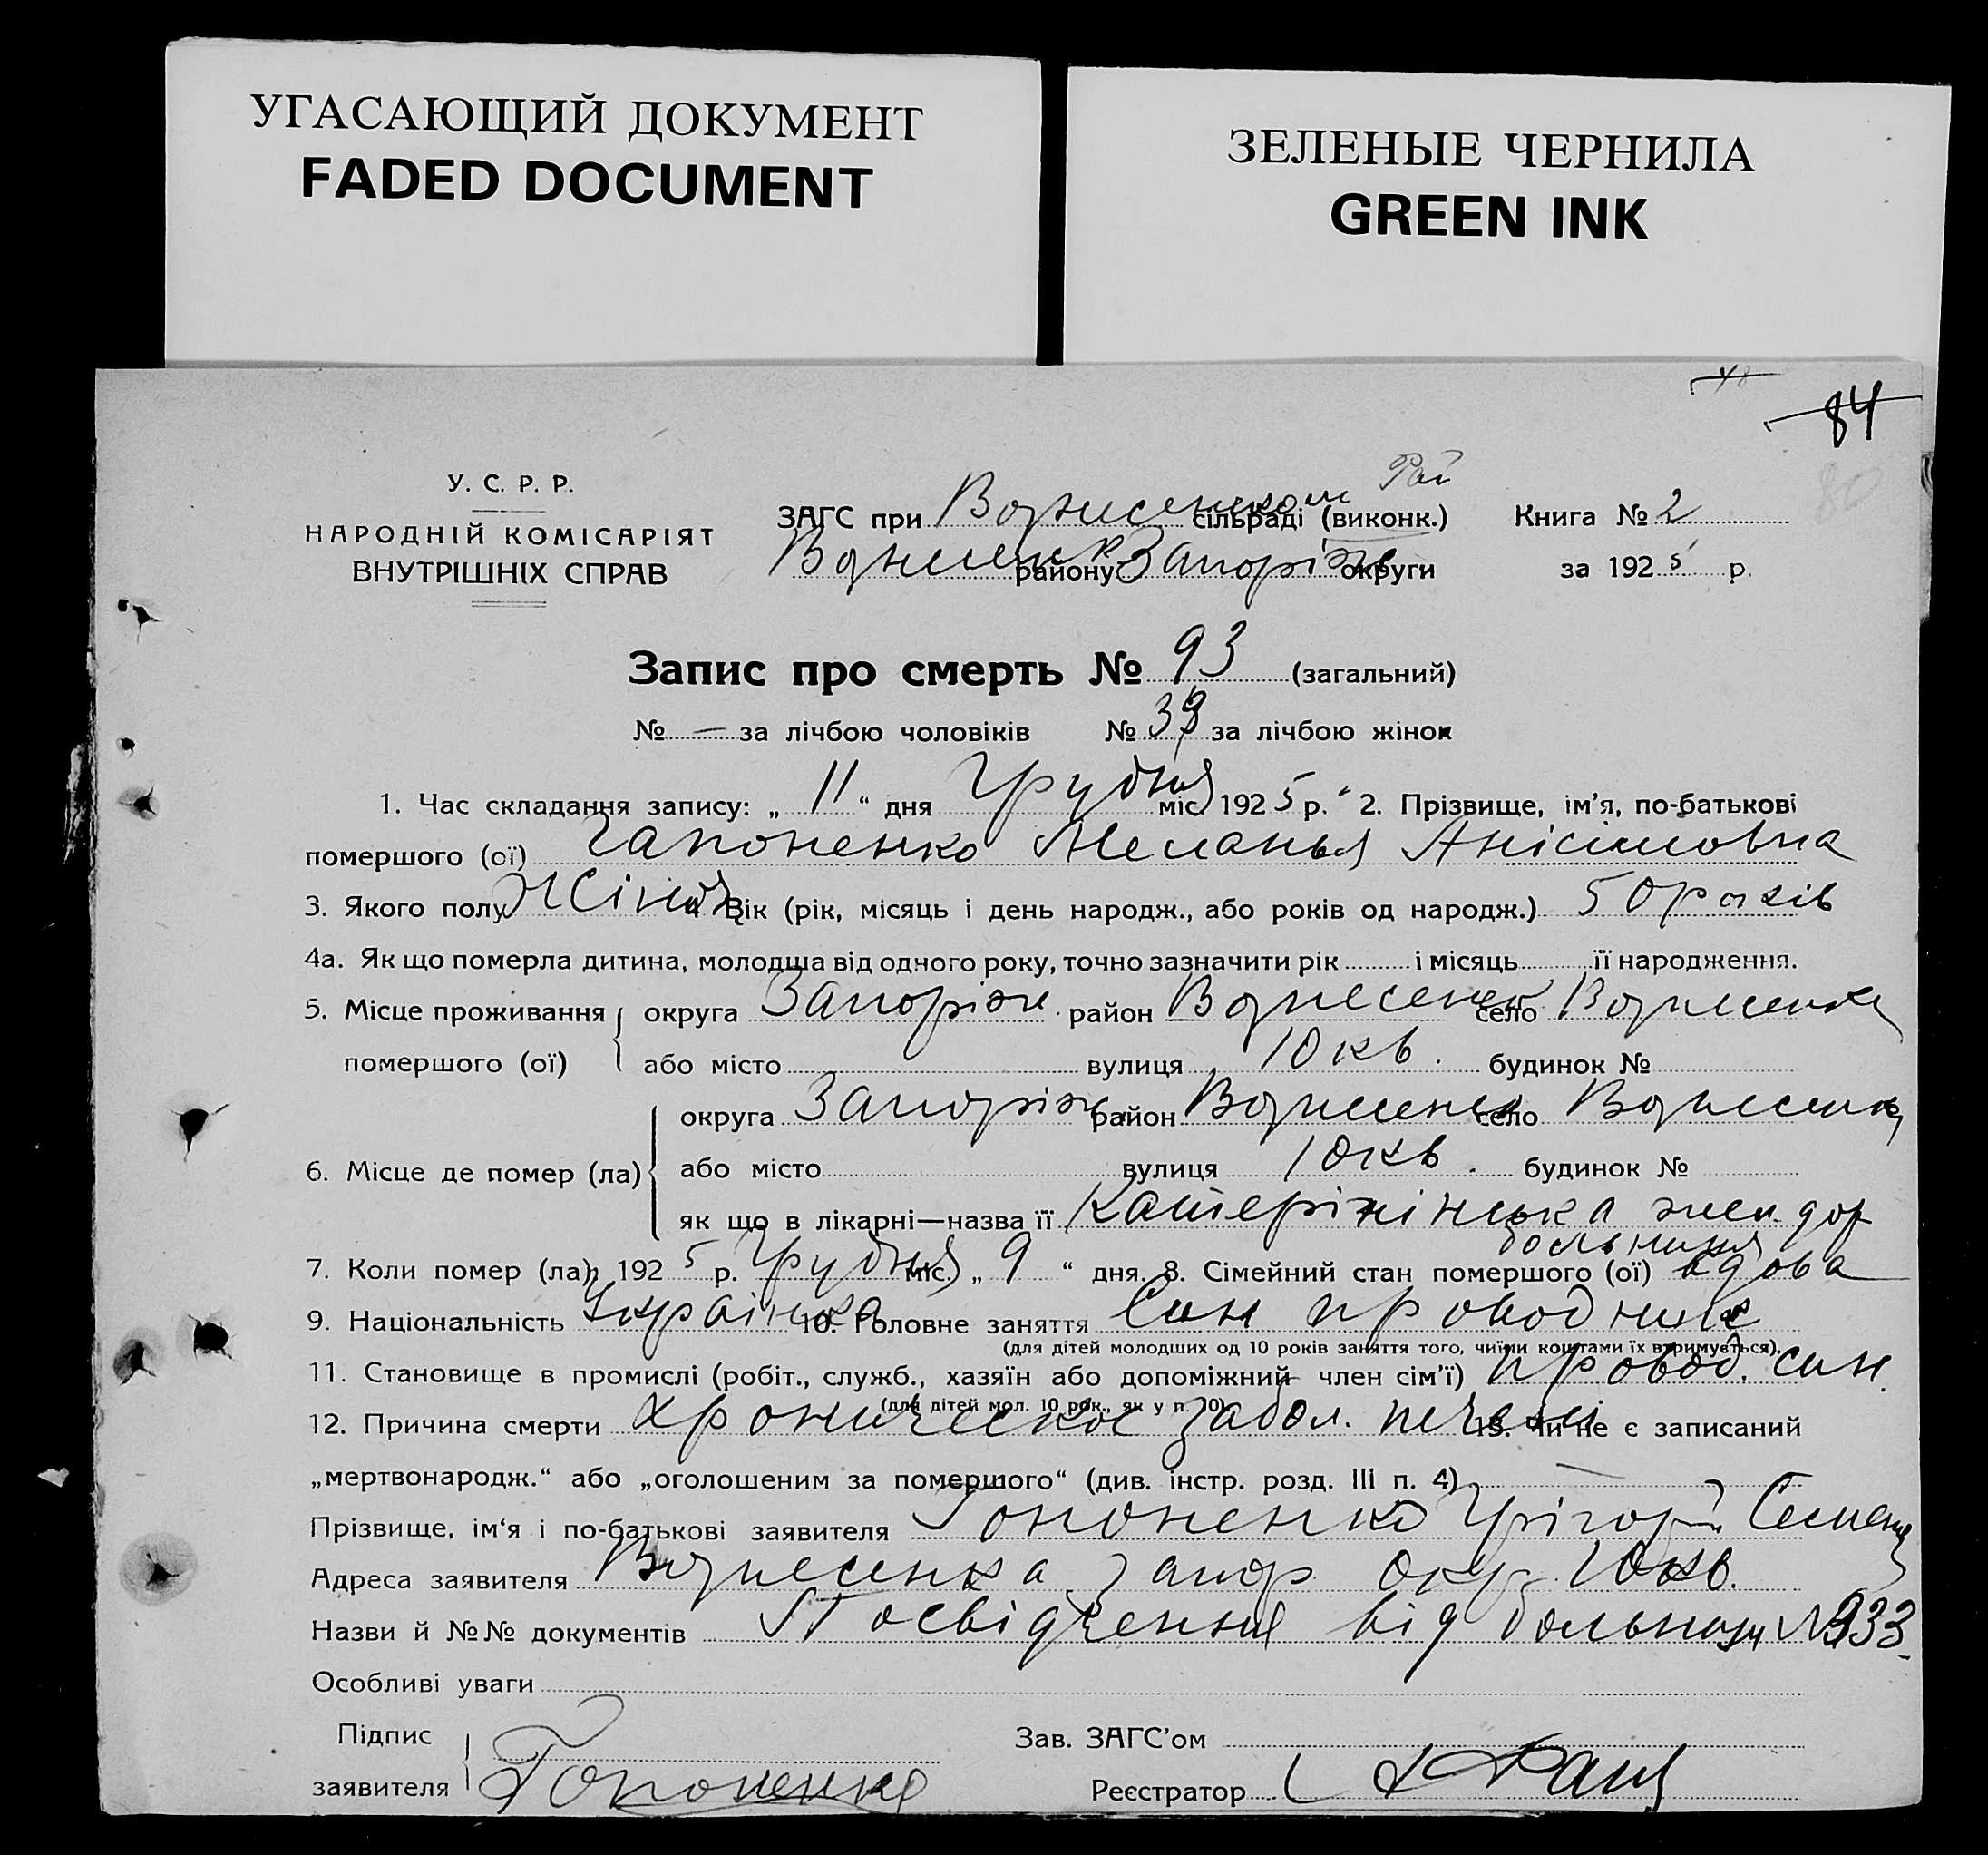 УГАСАЮЩИЙ ДОКУМЕНТ
FADED DOCUMENT
ЗЕЛЕНЫЕ ЧЕРНИЛА
GREEN INK
84
80
У. С. Р. Р.
НАРОДНІЙ КОМІСАРІЯТ
ВНУТРІШНІХ СПРАВ
ЗАГС при Вознесенском Рай сільраді (виконк.) Книга № 2
Вознесенк району Запоріж округи за 1925 р.
Запис про смерть № 93 (загальний)
№ — за лічбою чоловіків № 39 за лічбою жінок
1. Час складання запису: „ 11 “ дня Грудня міс. 1925 р. 2. Прізвище, ім’я, по-батькові
помершого (ої) Гапоненко Меланья Анісімовна
3. Якого полу Жіноч 4. Вік (рік, місяць і день народж., або років од народж.) 50 років
4а. Як що померла дитина, молодша від одного року, точно зазначити рік і місяць її народження.
5. Місце проживання помершого (ої) округа Запоріж район Вознесенск село Вознесенка
або місто вулиця 10 кв. будинок №
6. Місце де помер (ла) округа Запоріж район Вознесенск село Вознесенка
або місто вулиця 10 кв. будинок №
як що в лікарні—назва її Катерінінська жел. дор больниця
7. Коли помер (ла) 1925 р. Грудня міс. „ 9 “ дня. 8. Сімейний стан помершого (ої) вдова
9. Національність Українка 10. Головне заняття Син проводник
(для дітей молодших од 10 років заняття того, чиїми коштами їх втримується).
11. Становище в промислі (робіт., служб., хазяїн або допоміжний член сім’ї) провод. син.
(для дітей мол. 10 рок., як у п. 10)
12. Причина смерти хроническое забол. печени 13. Чи не є записаний
„мертвонародж.“ або „оголошеним за помершого“ (див. інстр. розд. III п. 4) —
Прізвище, ім‘я і по-батькові заявителя Гопоненко Грігорій Семенов
Адреса заявителя Вознесенка Запор окр. 10 кв.
Назви й №№ документів Посвідчення від больниці № 933.
Особливі уваги
Підпис заявителя Гопоненко
Зав. ЗАГС’ом
Реєстратор